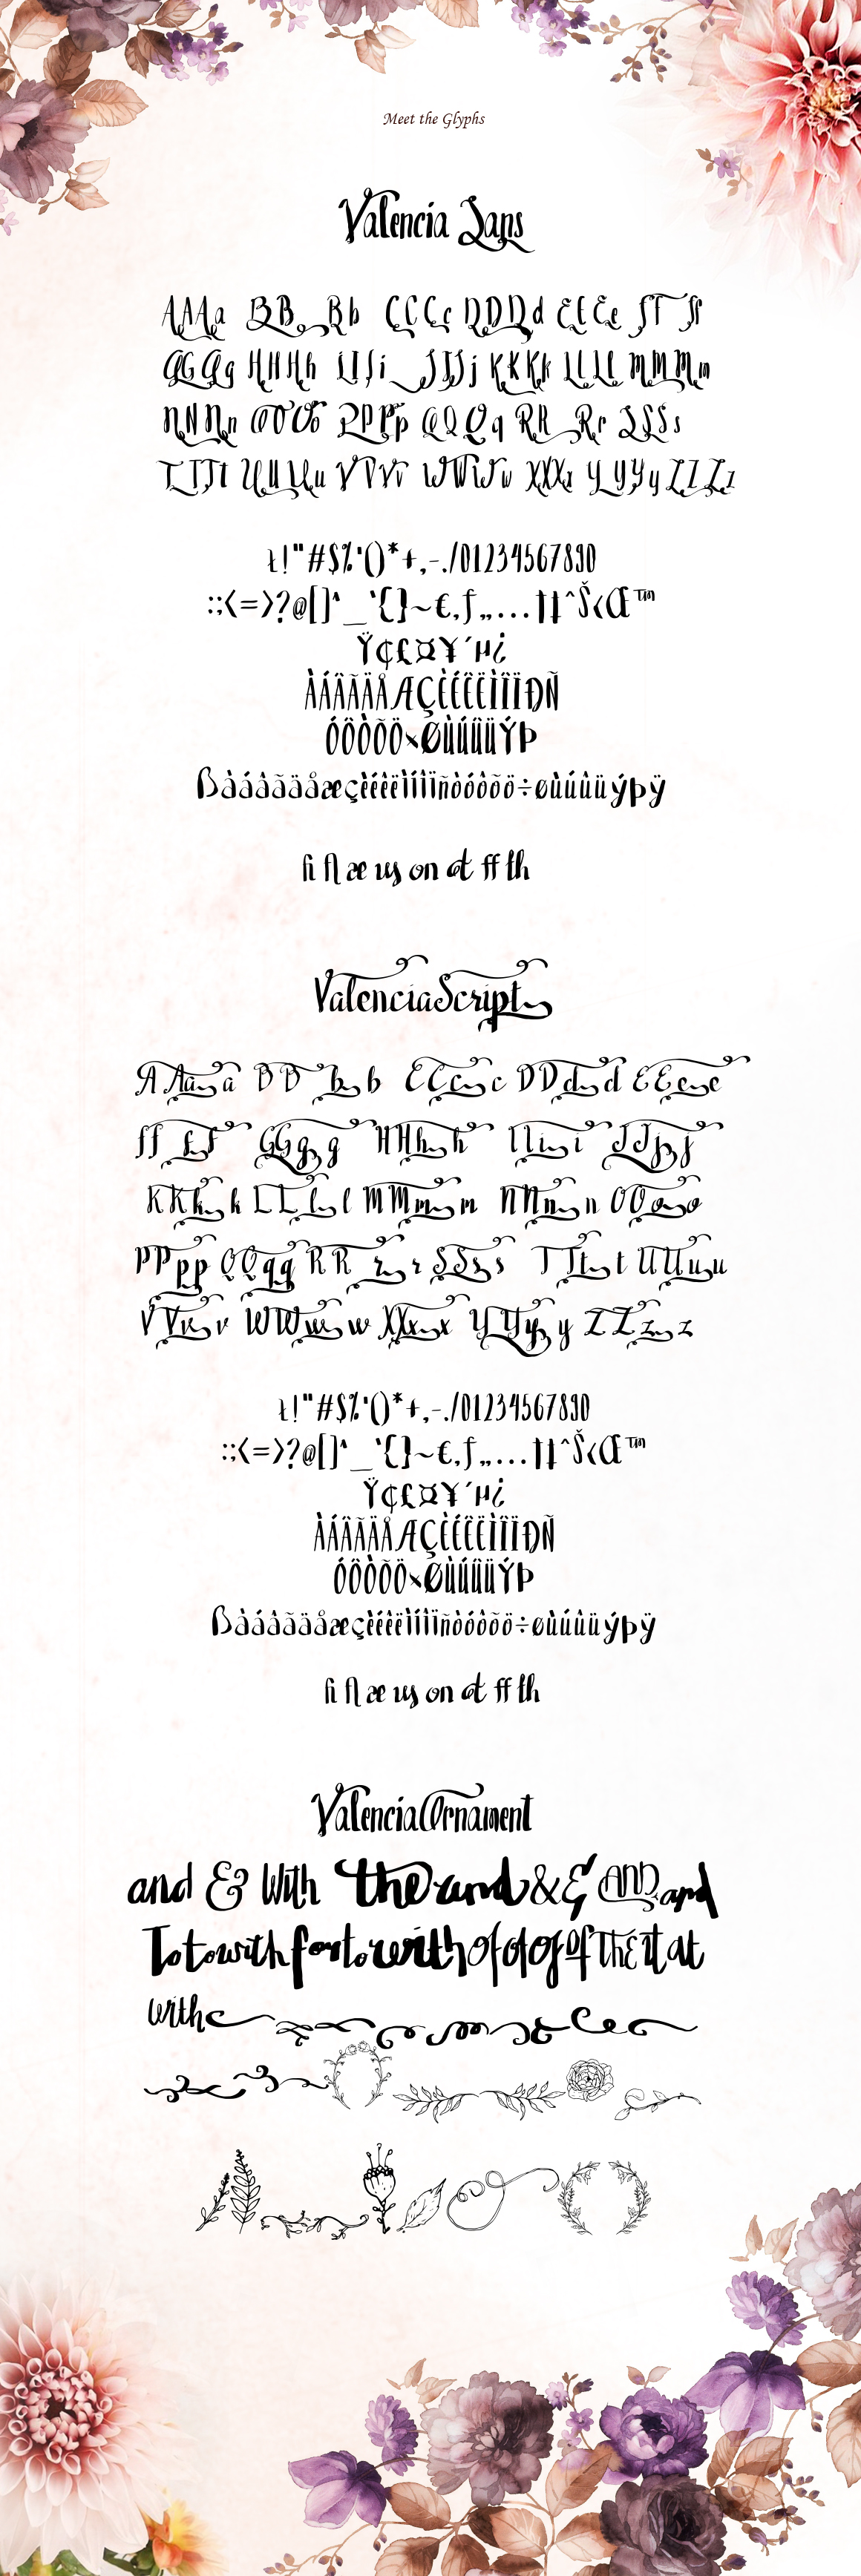 Meet the Glyphs
Valencia Sans
AAAa BB Bb CCCc DDDd EEEe ff ff
GGGg HHHh IIIi JJJj KKKk LLLl MMMm
NNNn OOOo PPPp QQQq RR Rr SSSs
TTTt UUUu VVVv WWWw XXXx YYYy ZZZz
ł!"#$%'()*+,-./0123456789
:;<=>?@[]^_`{}~€,ƒ„…†‡ˆŠ‹Œ™
Ÿ¢£¤¥´µ¿
ÀÁÂÃÄÅÆÇÈÉÊËÌÍÎÏÐÑ
ÓÔÒÕÖ×ØÙÚÛÜÝÞ
ßàáâãäåæçèéêëìíîïñòóôõö÷øùúûüýþÿ
fi fl æ us on ot ff th
ValenciaScript
A Aa a B B b b C C c c D D d d E E e e
f f f f G G g g H H h h I I i i J J j j
K K k k L L l l M M m m N N n n O O o o
P P p p Q Q q q R R r r S S s s T T t t U U u u
V V v v W W w w X X x x Y Y y y Z Z z z
ł!"#$%'()*+,-./0123456789
:;<=>?@[]^_`{}~€,ƒ„…†‡ˆŠ‹Œ™
Ÿ¢£¤¥´µ¿
ÀÁÂÃÄÅÆÇÈÉÊËÌÍÎÏÐÑ
ÓÔÒÕÖ×ØÙÚÛÜÝÞ
ßàáâãäåæçèéêëìíîïñòóôõö÷øùúûüýþÿ
fi fl æ us on ot ff th
ValenciaOrnament
and & With the and & & AND and
To to with for to with of of of of The it at
with